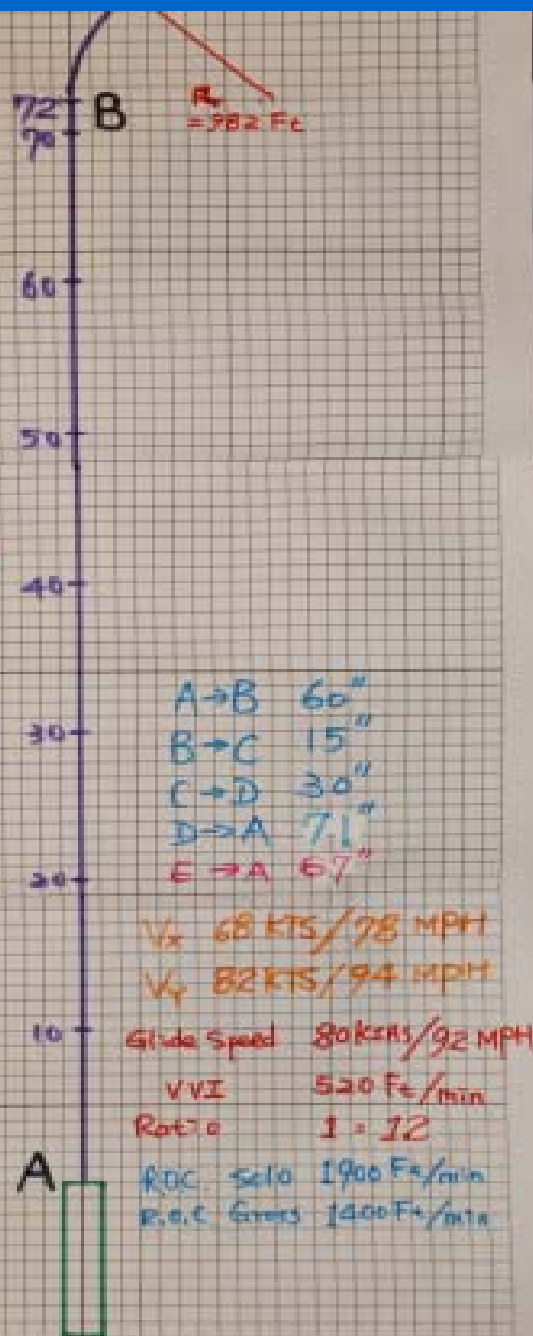 72 B
70
R
= 982 Ft
60
50
40
A→B 60"
B→C 15"
30
C→D 30"
D→A 71"
E→A 67"
20
Vx 68 KTS/78 MPH
Vy 82 KTS/94 MPH
10
Glide Speed 80 KIAS/92 MPH
VVI 520 Ft/min
Ratio 1 : 12
A
ROC Solo 1900 Ft/min
R.O.C Gross 1400 Ft/min